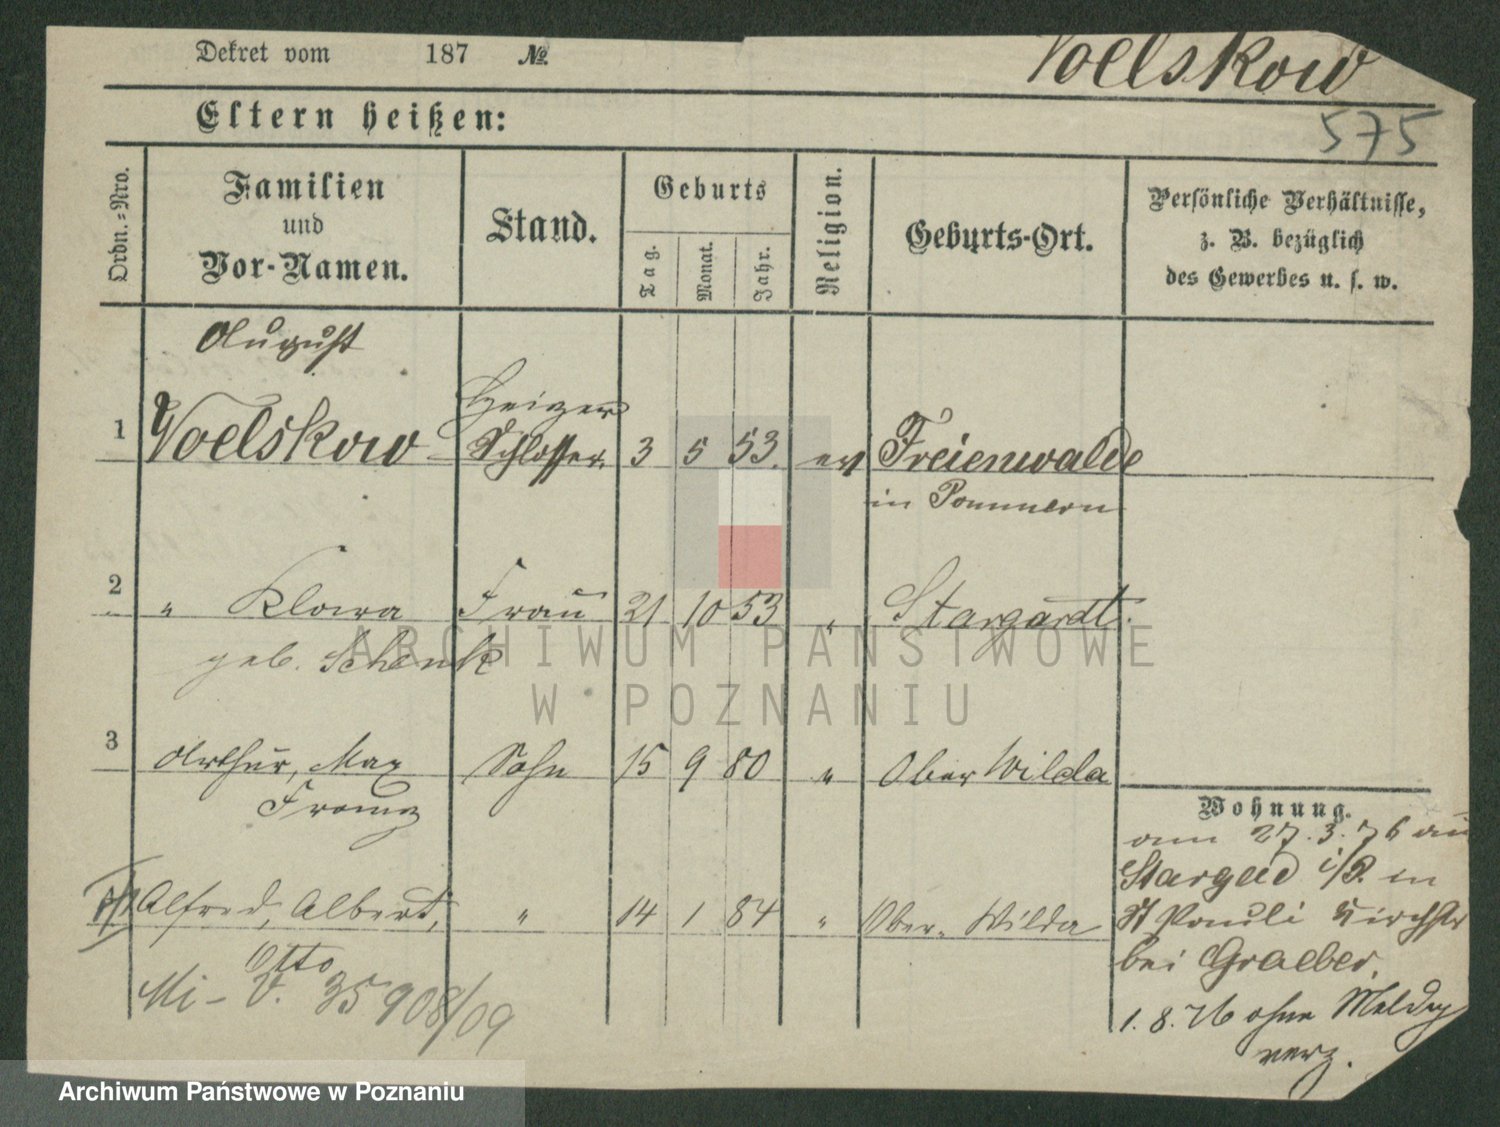 Dekret vom 187 №
Voelskow
575
Eltern heißen:
Ordn.-Nro.
Familien
und
Vor-Namen.
Stand.
Geburts
Tag.
Monat.
Jahr.
Religion.
Geburts-Ort.
Persönliche Verhältnisse,
z. B. bezüglich
des Gewerbes u. s. w.
August
1 Voelskow Heizer
Schlosser 3 5 53. ev Freienwalde
in Pommern
2 " Klara Frau 21 10 53 " Stargardt.
geb. Schenk
3 Arthur, Max Sohn 15 9 80 " Ober Wilda
Franz
Alfred, Albert, " 14 1 84 " Ober-Wilda
Otto
Mi - V. 35908/09
Wohnung.
am 27.3.76 au
Stargard i/P. in
St Pauli Kirchstr
bei Graeber.
1.8.76 ohne Meldg
verz.
ARCHIWUM PAŃSTWOWE
W POZNANIU
Archiwum Państwowe w Poznaniu